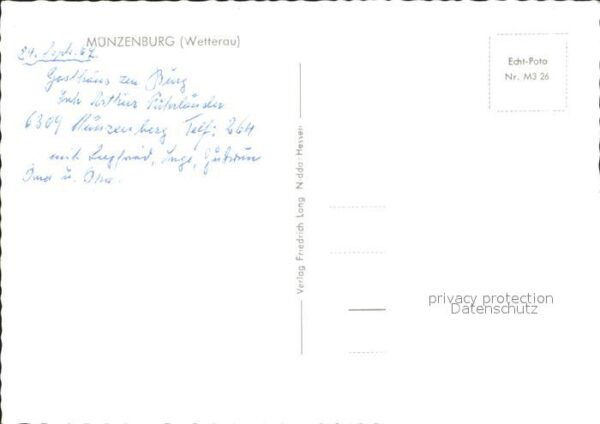 MÜNZENBURG (Wetterau)
24. Sept. 67
Gasthaus zur Burg
Inh. Arthur Führländer
6309 Münzenberg Telf: 264
mit Siegfried, Inge, Gudrun
Oma u. Opa.
Echt-Foto
Nr. M3 26
Verlag Friedrich Lang Nidda-Hessen
privacy protection
Datenschutz